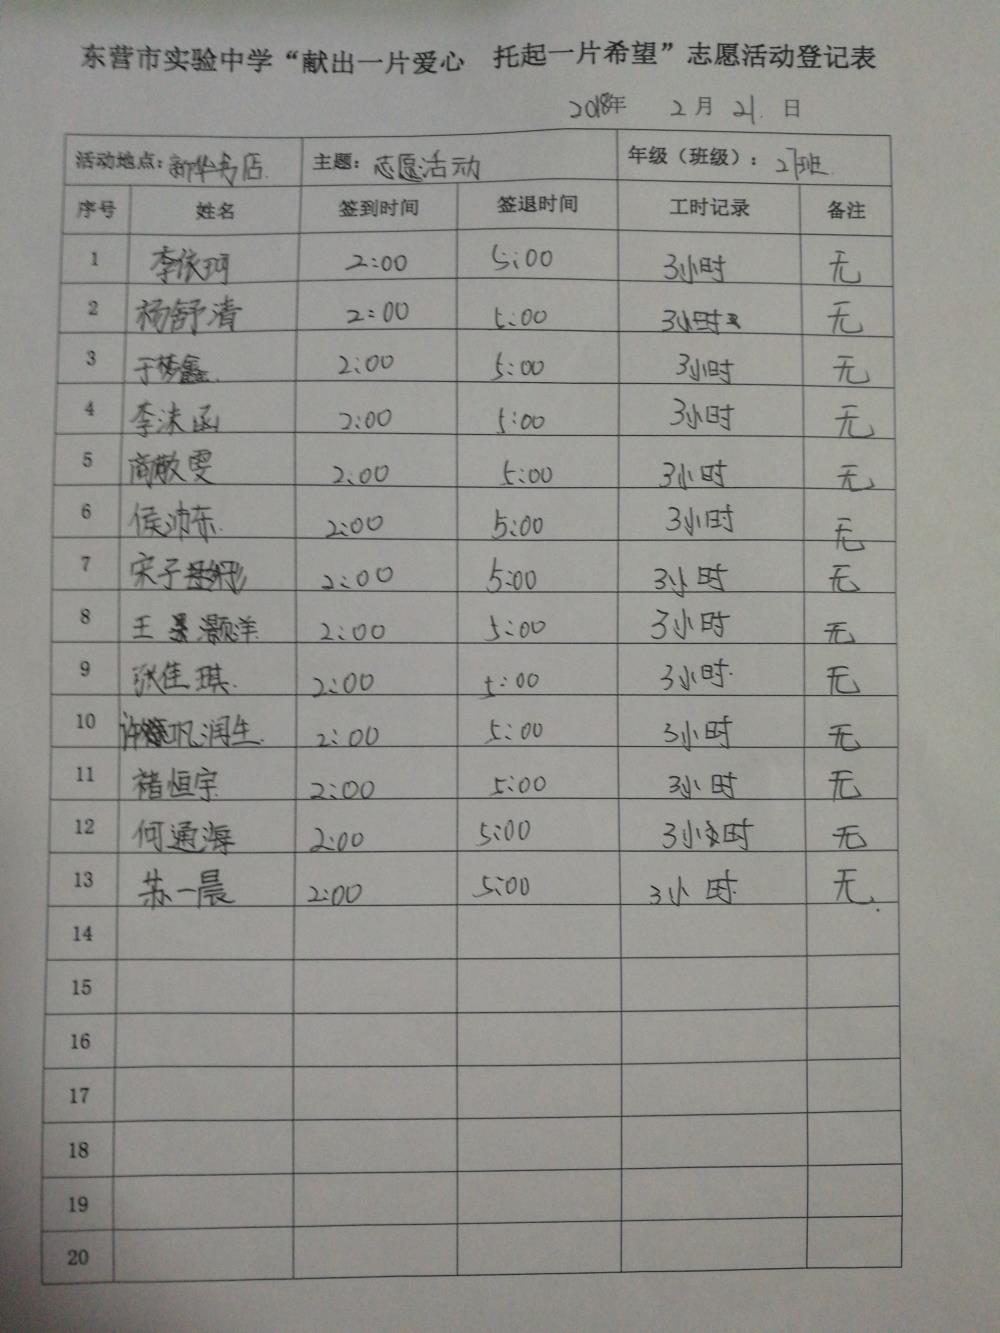 东营市实验中学“献出一片爱心 托起一片希望”志愿活动登记表
2018年 2月 21日
活动地点：新华书店 主题：志愿活动 年级（班级）：27班
序号 姓名 签到时间 签退时间 工时记录 备注
1 李依珂 2:00 5:00 3小时 无
2 杨舒清 2:00 5:00 3小时 无
3 于梦鑫 2:00 5:00 3小时 无
4 李沫函 2:00 5:00 3小时 无
5 商敬雯 2:00 5:00 3小时 无
6 侯沛东 2:00 5:00 3小时 无
7 宋子 2:00 5:00 3小时 无
8 王灏洋 2:00 5:00 3小时 无
9 张佳琪 2:00 5:00 3小时 无
10 许 润生 2:00 5:00 3小时 无
11 褚恒宇 2:00 5:00 3小时 无
12 何通海 2:00 5:00 3小时 无
13 苏一晨 2:00 5:00 3小时 无
14
15
16
17
18
19
20